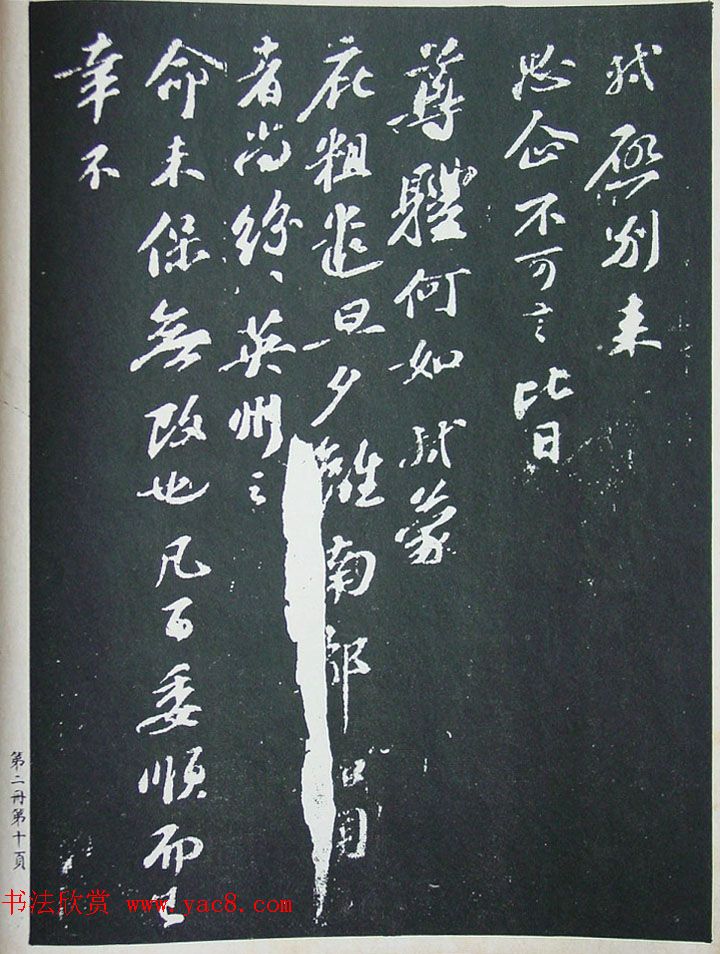 軾啓別来
思企不可言比日
尊體何如軾蒙
庇粗遣旦夕離南都
者尚紛紛英州之
命未保無改也凡百委順而已
幸不
第二册第十頁
书法欣赏 www.yac8.com